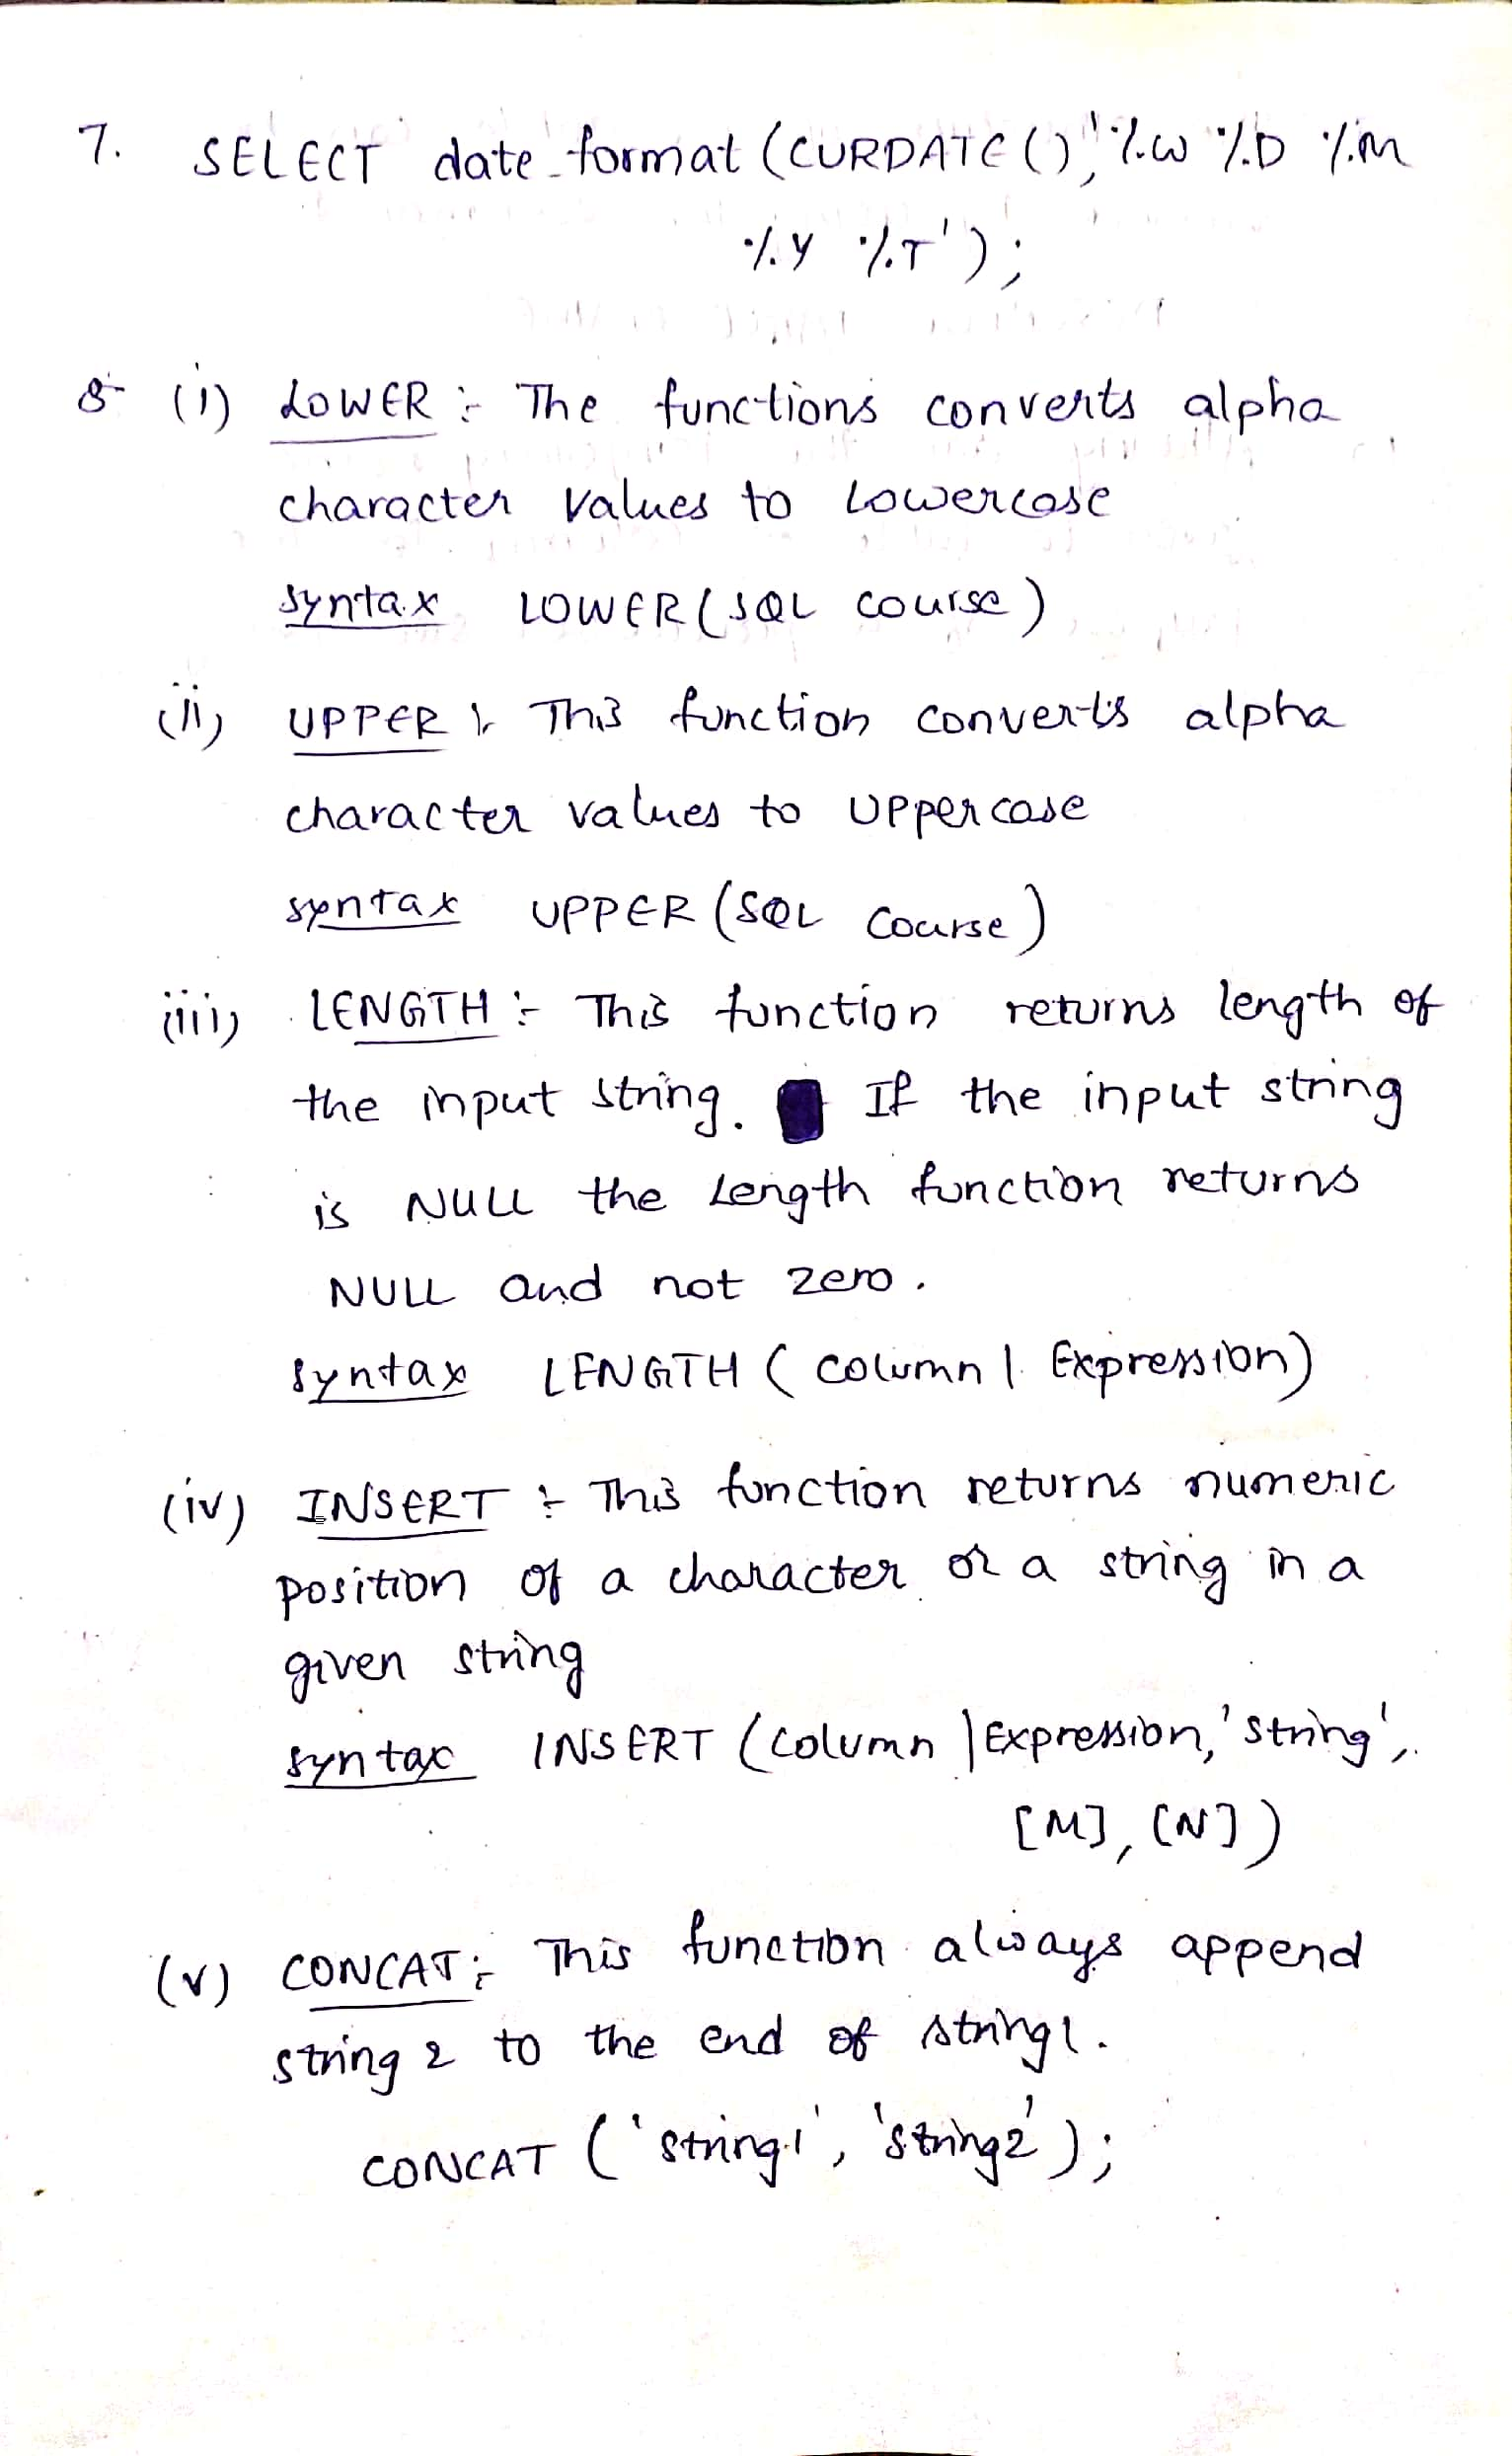 7. SELECT date_format (CURDATE(),'%W %D %M
%Y %T');
8 (i) LOWER :- The functions converts alpha
character values to Lowercase
syntax LOWER (SQL course)
(ii) UPPER :- This function converts alpha
character values to Uppercase
syntax UPPER (SQL Course)
(iii) LENGTH :- This function returns length of
the input string. If the input string
is NULL the Length function returns
NULL and not zero.
syntax LENGTH ( column | Expression)
(iv) INSERT :- This function returns numeric
position of a character or a string in a
given string
syntax INSERT (Column | Expression, 'string',
[M], [N])
(v) CONCAT :- This function always append
string 2 to the end of string 1.
CONCAT ('string1', 'string2');